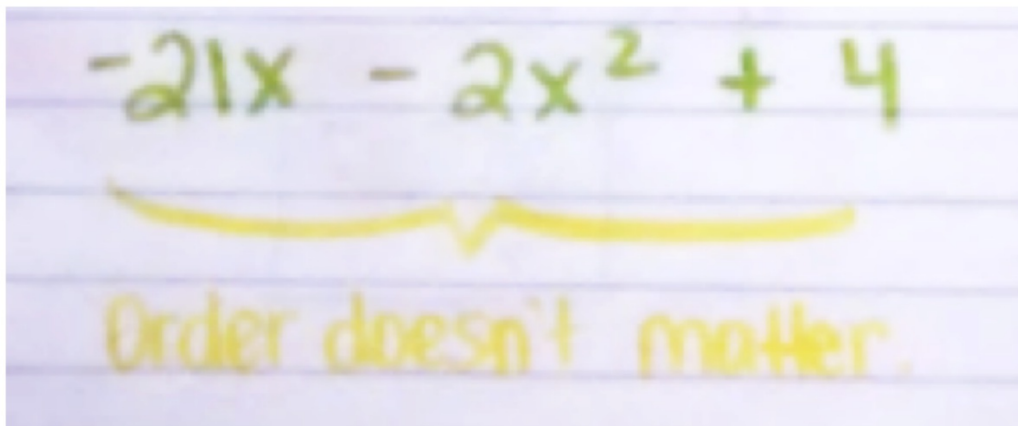 -21x - 2x² + 4
Order doesn't matter.